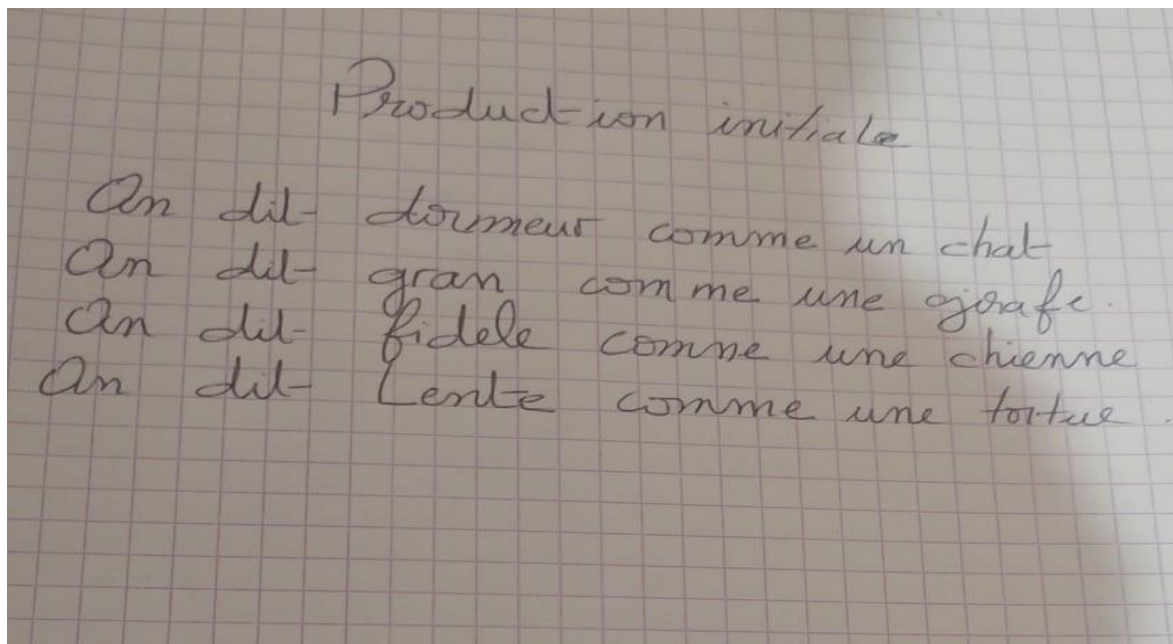 Production initiale
An dit dormeur comme un chat
An dit gran comme une girafe.
An dit fidele comme une chienne
An dit Lente comme une tortue.